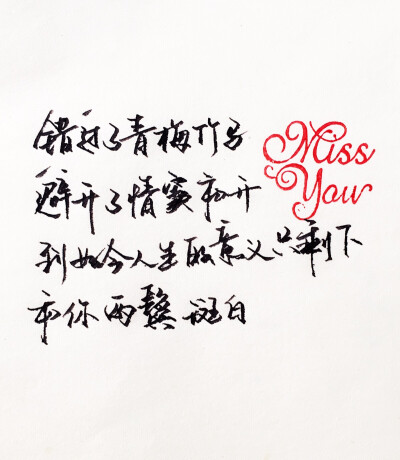 错过了青梅竹马
避开了情窦初开
到如今人生的意义只剩下
和你两鬓斑白
Miss
You